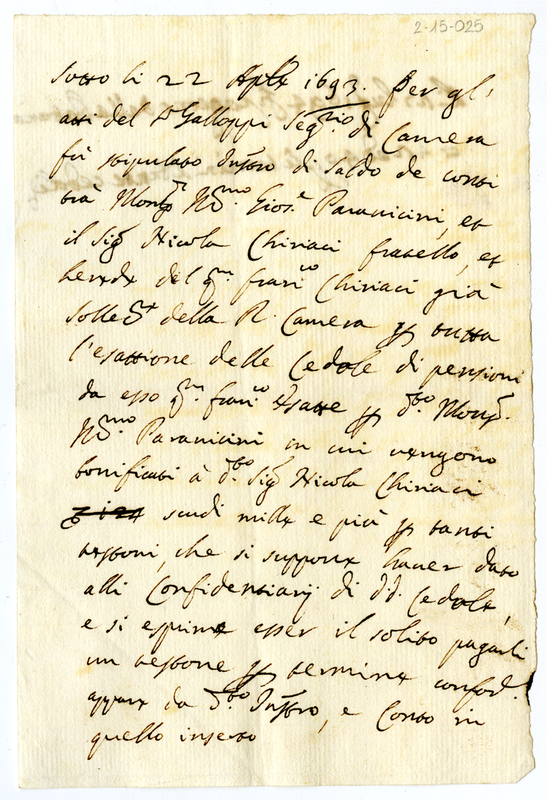 2-15-025
Sotto li 22 Aple 1693. Per gl'
atti del Sr Galloppi Segrio di Camera
fù stipulato Instro di saldo de conti
trà Monsr Nro Gios.e Paravicini, et
il Sigr Nicola Chiriaci fratello, et
herede del qm. franco Chiriaci già
Sollect della R. Camera per tutta
l'esattione delle Cedole di pensioni
da esso qm franco esatte per do Monsr.
Paravicini in cui vengono
bonificati à do Sigr Nicola Chiriaci
scudi mille e più per tanti
testoni, che si suppone haver dato
alli Confidentiarij di dd. Cedole,
e si esprime esser il solito pagarli
un testone per termine conford.
appare da do Instro, e Conto in
quello inserto